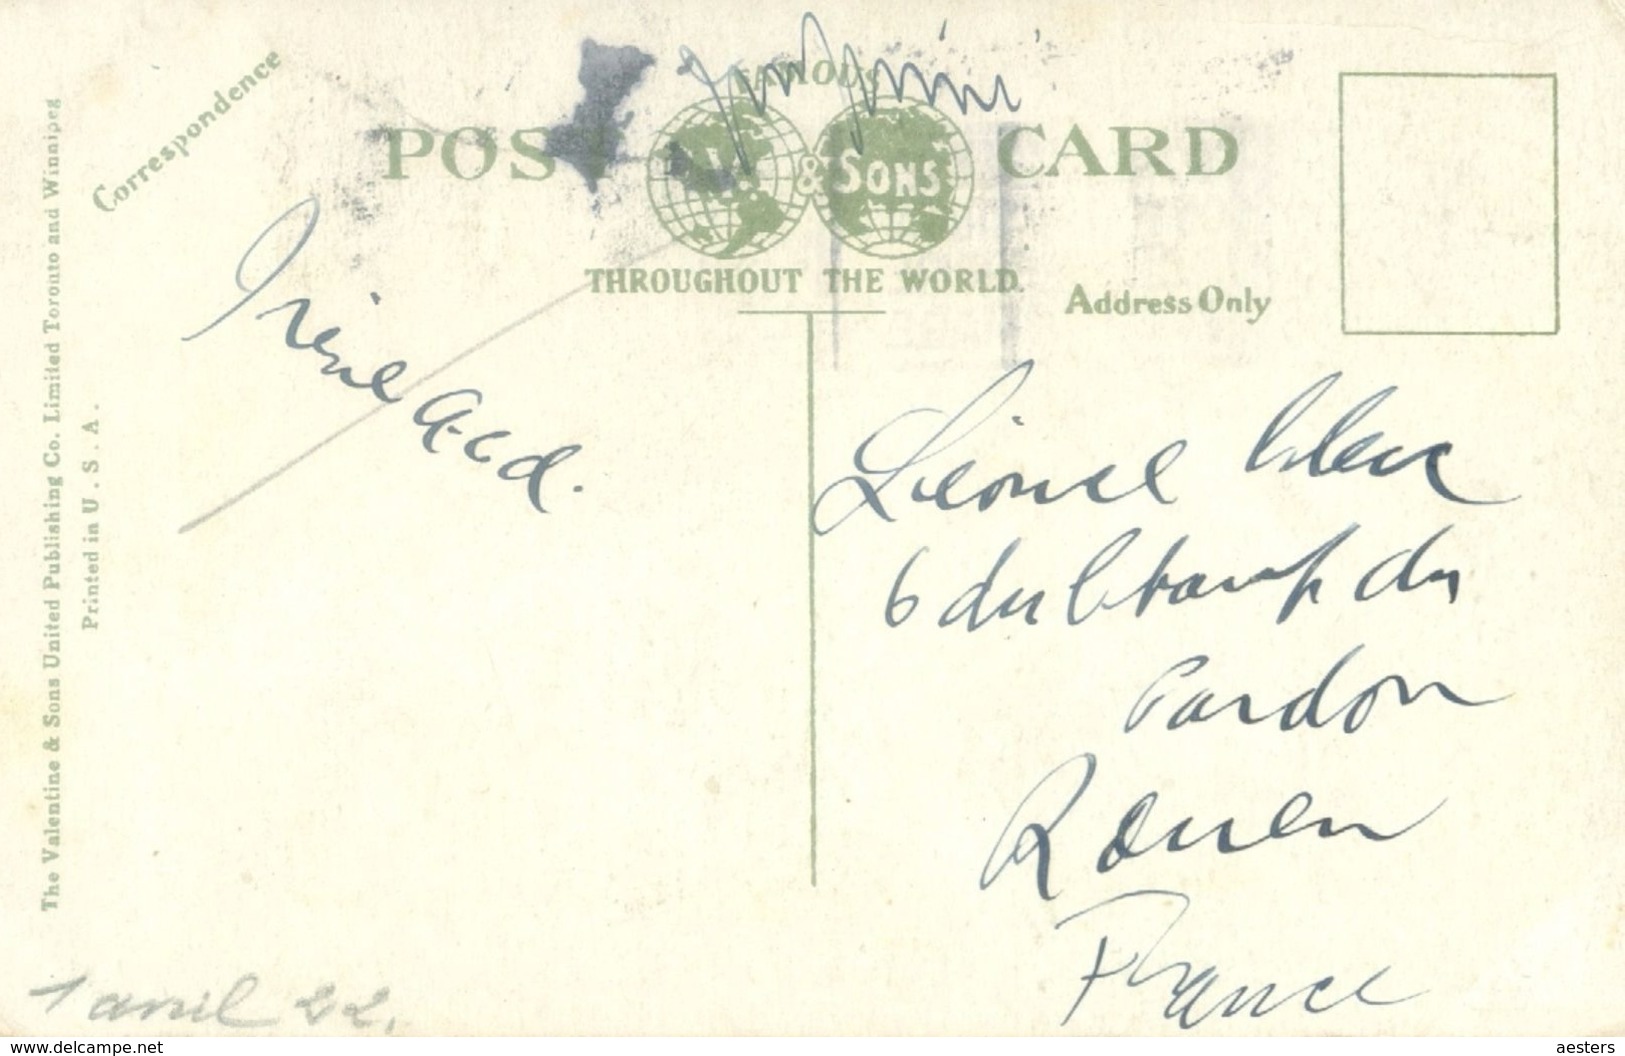 Correspondence
FAMOUS
POST CARD
V. & SONS
THROUGHOUT THE WORLD.
Address Only
The Valentine & Sons United Publishing Co. Limited Toronto and Winnipeg
Printed in U.S.A.
Irène
Lionel
6 du Champ du
Pardon
Rouen
France
1 avril 22.
www.delcampe.net
aesters